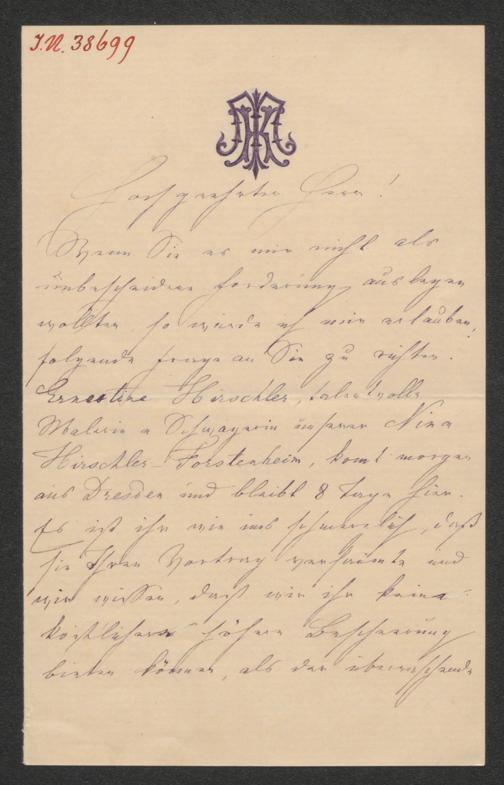 J.N. 38699
Hochgeehrter Herr!
Wenn Sie es mir nicht als
unbescheidene Forderung auslegen
wollten so würde ich mir erlauben,
folgende Frage an Sie zu richten.
Ernestine Hirschler, talentvolle
Malerin u Schwägerin unserer Nina
Hirschler-Forstenheim, komt morgen
aus Dresden und bleibt 8 Tage hier.
Es ist ihr wie uns schmerzlich, daß
sie Ihren Vortrag versäumte und
wir wissen, daß wir ihr keine
köstlichere schönere Bescheerung
bieten können, als der überraschende